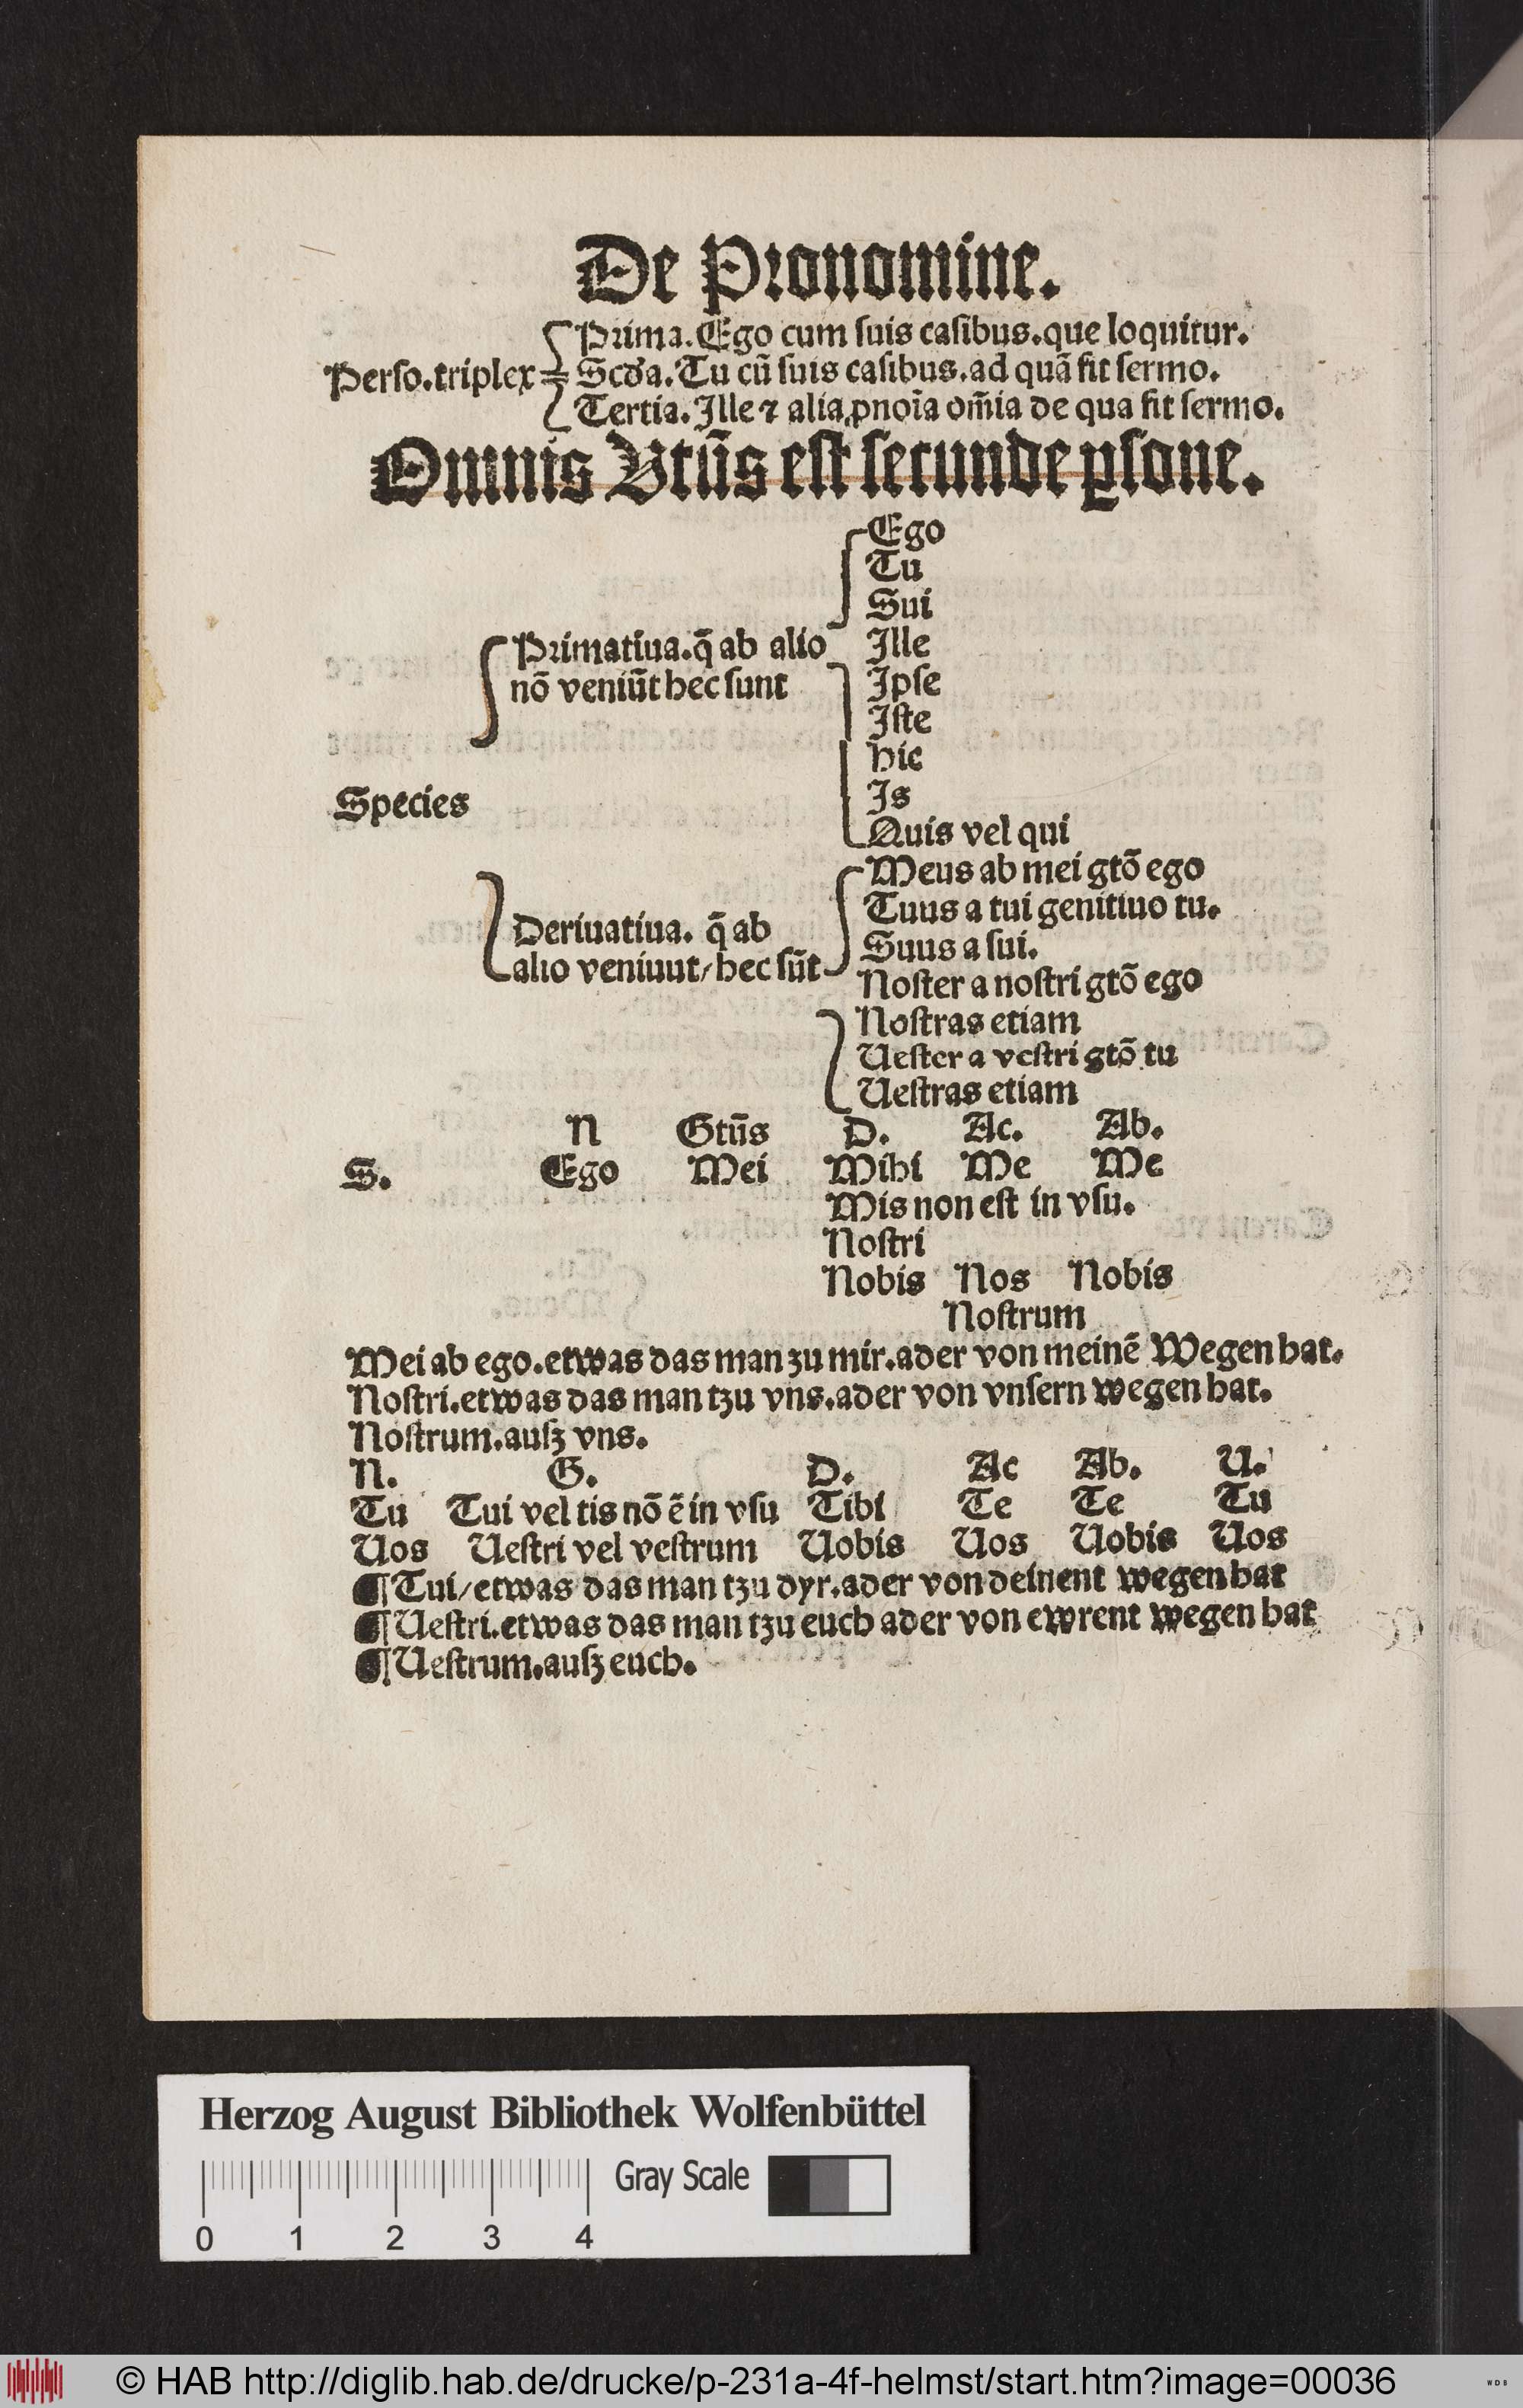 De Pronomine.
Prima. Ego cum suis casibus. que loquitur.
Perso. triplex Scd'a. Tu cū suis casibus. ad quā fit sermo.
Tertia. Ille ⁊ alia ꝓnoīa om̄ia de qua fit sermo.
Omnis Vtūs est secunde ꝑsone.
Ego
Tu
Sui
Primatiua. q̄ ab alio Ille
nō veniūt hec sunt Ipse
Iste
Hic
Is
Species
Quis vel qui
Meus ab mei gtō ego
Tuus a tui genitiuo tu.
Deriuatiua. q̄ ab Suus a sui.
alio veniuut/ hec sūt Noster a nostri gtō ego
Nostras etiam
Uester a vestri gtō tu
Uestras etiam
N Gtūs D. Ac. Ab.
S. Ego Mei Mihi Me Me
Mis non est in vsu.
Nostri
Nobis Nos Nobis
Nostrum
Mei ab ego. etwas das man zu mir. ader von meinē Wegen hat.
Nostri. etwas das man tzu vns. ader von vnsern wegen hat.
Nostrum. ausz vns.
N. G. D. Ac Ab. U.
Tu Tui vel tis nō ē in vsu Tibi Te Te Tu
Uos Uestri vel vestrum Uobis Uos Uobis Uos
¶ Tui/ etwas das man tzu dyr. ader von deinent wegen hat
¶ Uestri. etwas das man tzu euch ader von ewrent wegen hat
¶ Uestrum. ausz euch.
Herzog August Bibliothek Wolfenbüttel
Gray Scale
0 1 2 3 4
© HAB http://diglib.hab.de/drucke/p-231a-4f-helmst/start.htm?image=00036
WDB